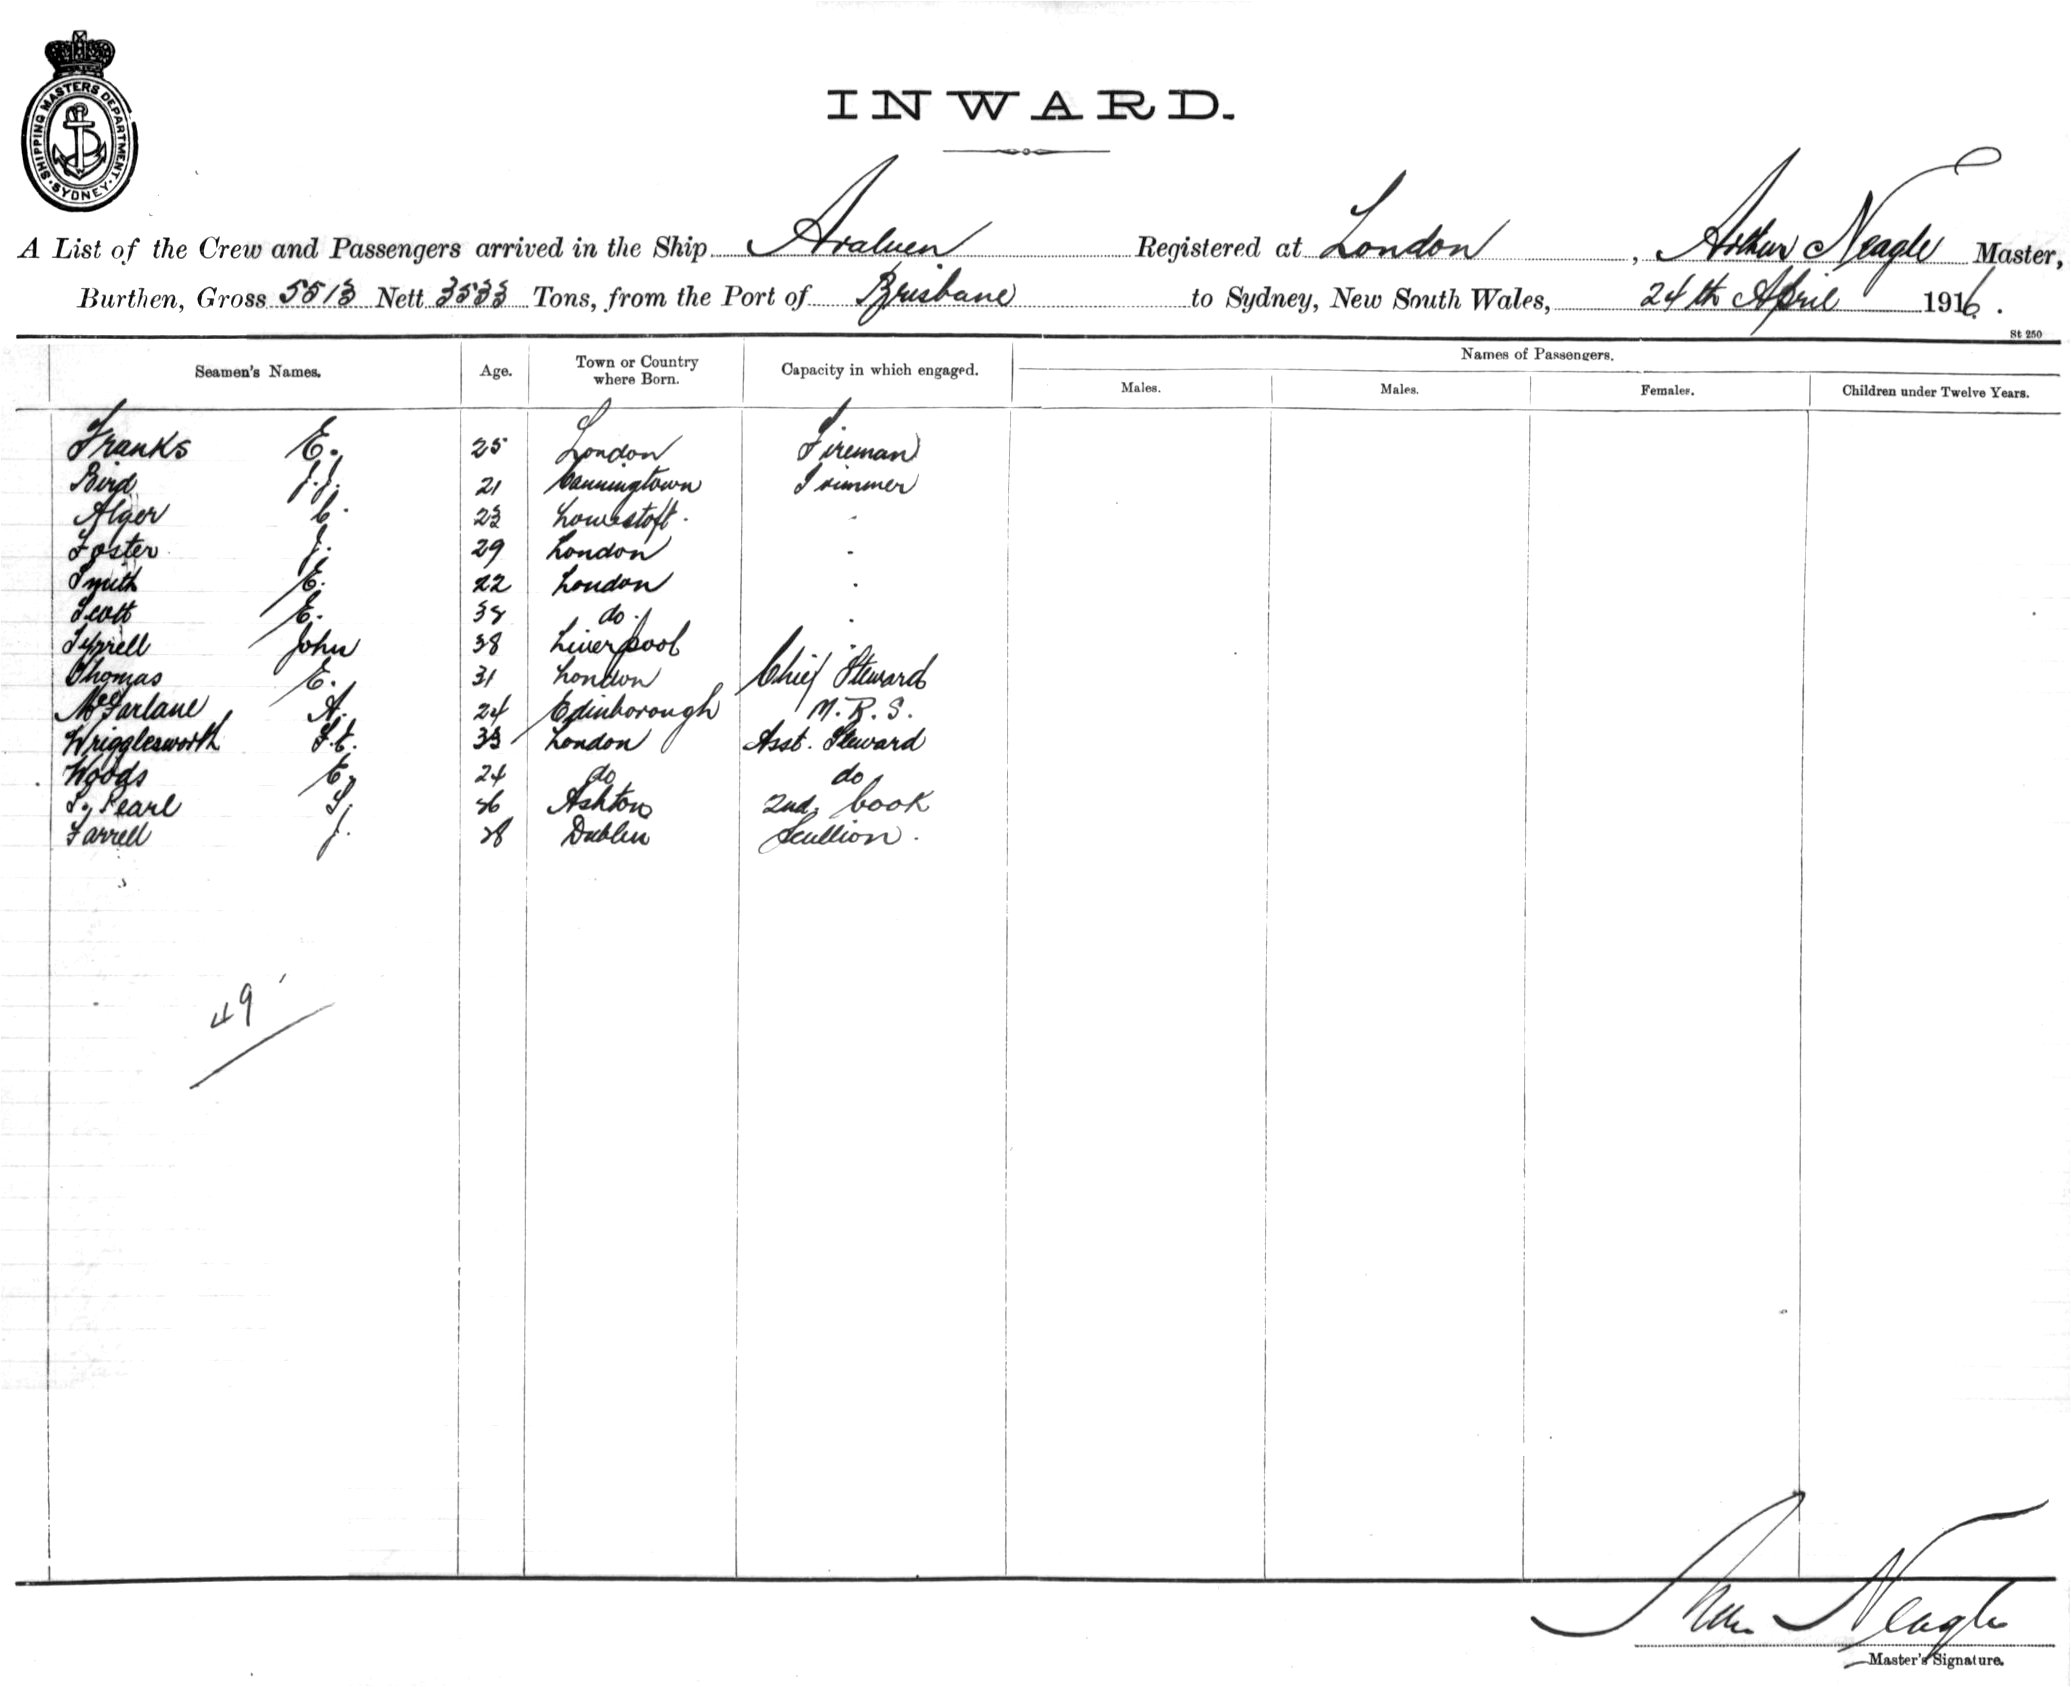 SHIPPING MASTERS DEPARTMENT. SYDNEY
INWARD.
A List of the Crew and Passengers arrived in the Ship Araluen Registered at London, Arthur Neagle Master,
Burthen, Gross 5513 Nett 3533 Tons, from the Port of Brisbane to Sydney, New South Wales, 24th April 1916.
St 250
Seamen's Names. Age. Town or Country where Born. Capacity in which engaged. Names of Passengers.
Males. Males. Females. Children under Twelve Years.
Franks E. 25 London Fireman
Bird J.J. 21 Canningtown Trimmer
Alger C. 23 Lowestoft. "
Foster J. 29 London "
Smith E. 22 London "
Scott E. 38 do. "
Tyrrell John 38 Liverpool "
Thomas E. 31 London Chief Steward
McFarlane A. 24 Edinborough M.R.S.
Wrigglesworth 33 London Asst. Steward
Woods C. 24 do do
Pearl 26 Ashton 2nd Cook
Farrell J. 28 Dublin Scullion.
49
Arthur Neagle
Master's Signature.